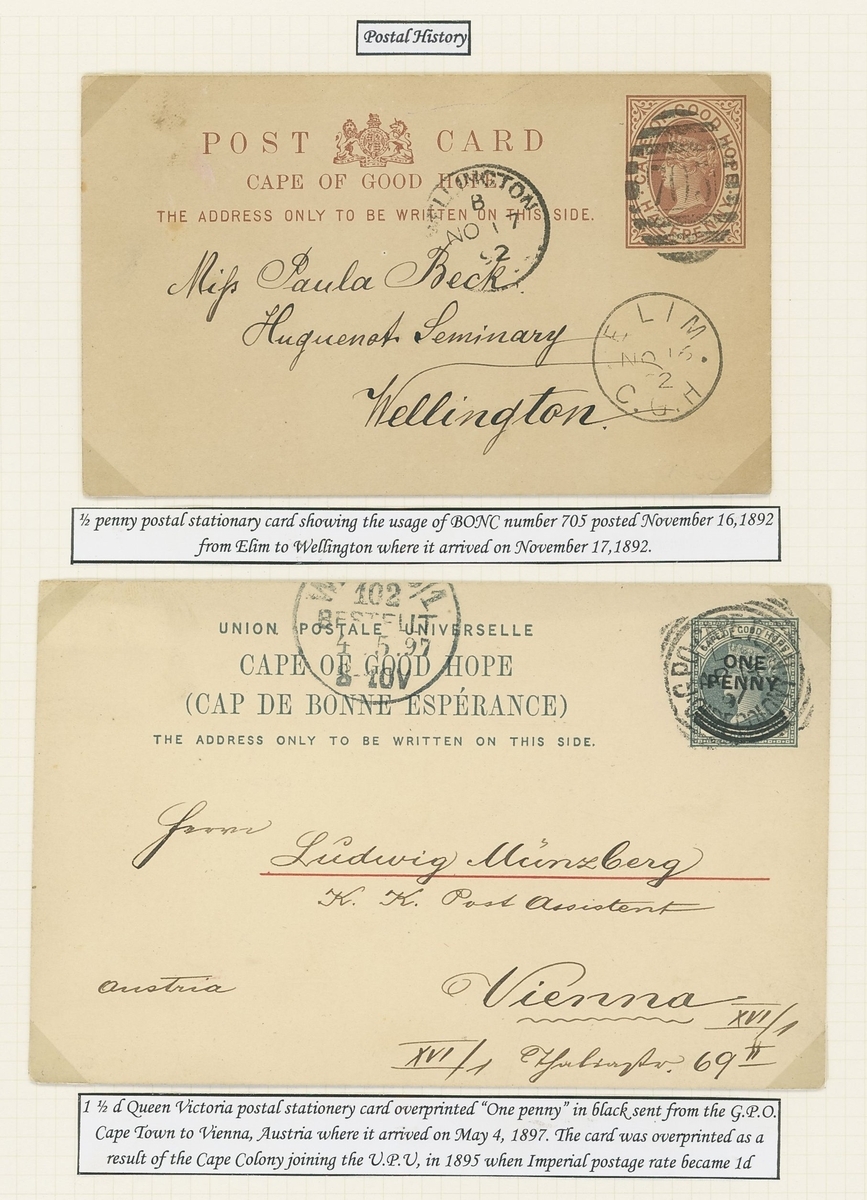 Postal History
POST CARD
CAPE OF GOOD HOPE
THE ADDRESS ONLY TO BE WRITTEN ON THIS SIDE.
CAPE OF GOOD HOPE
HALFPENNY
705
WELLINGTON
B
NO 17
92
Miſs Paula Beck
Huguenot Seminary
Wellington.
ELIM.
NO 16
92
C.G.H
½ penny postal stationary card showing the usage of BONC number 705 posted November 16,1892
from Elim to Wellington where it arrived on November 17,1892.
102
BESTELLT
4 5.97
8-10V
UNION POSTALE UNIVERSELLE
CAPE OF GOOD HOPE
(CAP DE BONNE ESPÉRANCE)
THE ADDRESS ONLY TO BE WRITTEN ON THIS SIDE.
CAPE OF GOOD HOPE
ONE
PENNY
97
Herrn
Ludwig Münzberg
K. K. Post Assistent
Austria
Vienna
XVI/1
XVI/1 Thaliastr. 69 II
1 ½ d Queen Victoria postal stationery card overprinted “One penny” in black sent from the G.P.O.
Cape Town to Vienna, Austria where it arrived on May 4, 1897. The card was overprinted as a
result of the Cape Colony joining the U.P.U, in 1895 when Imperial postage rate became 1d